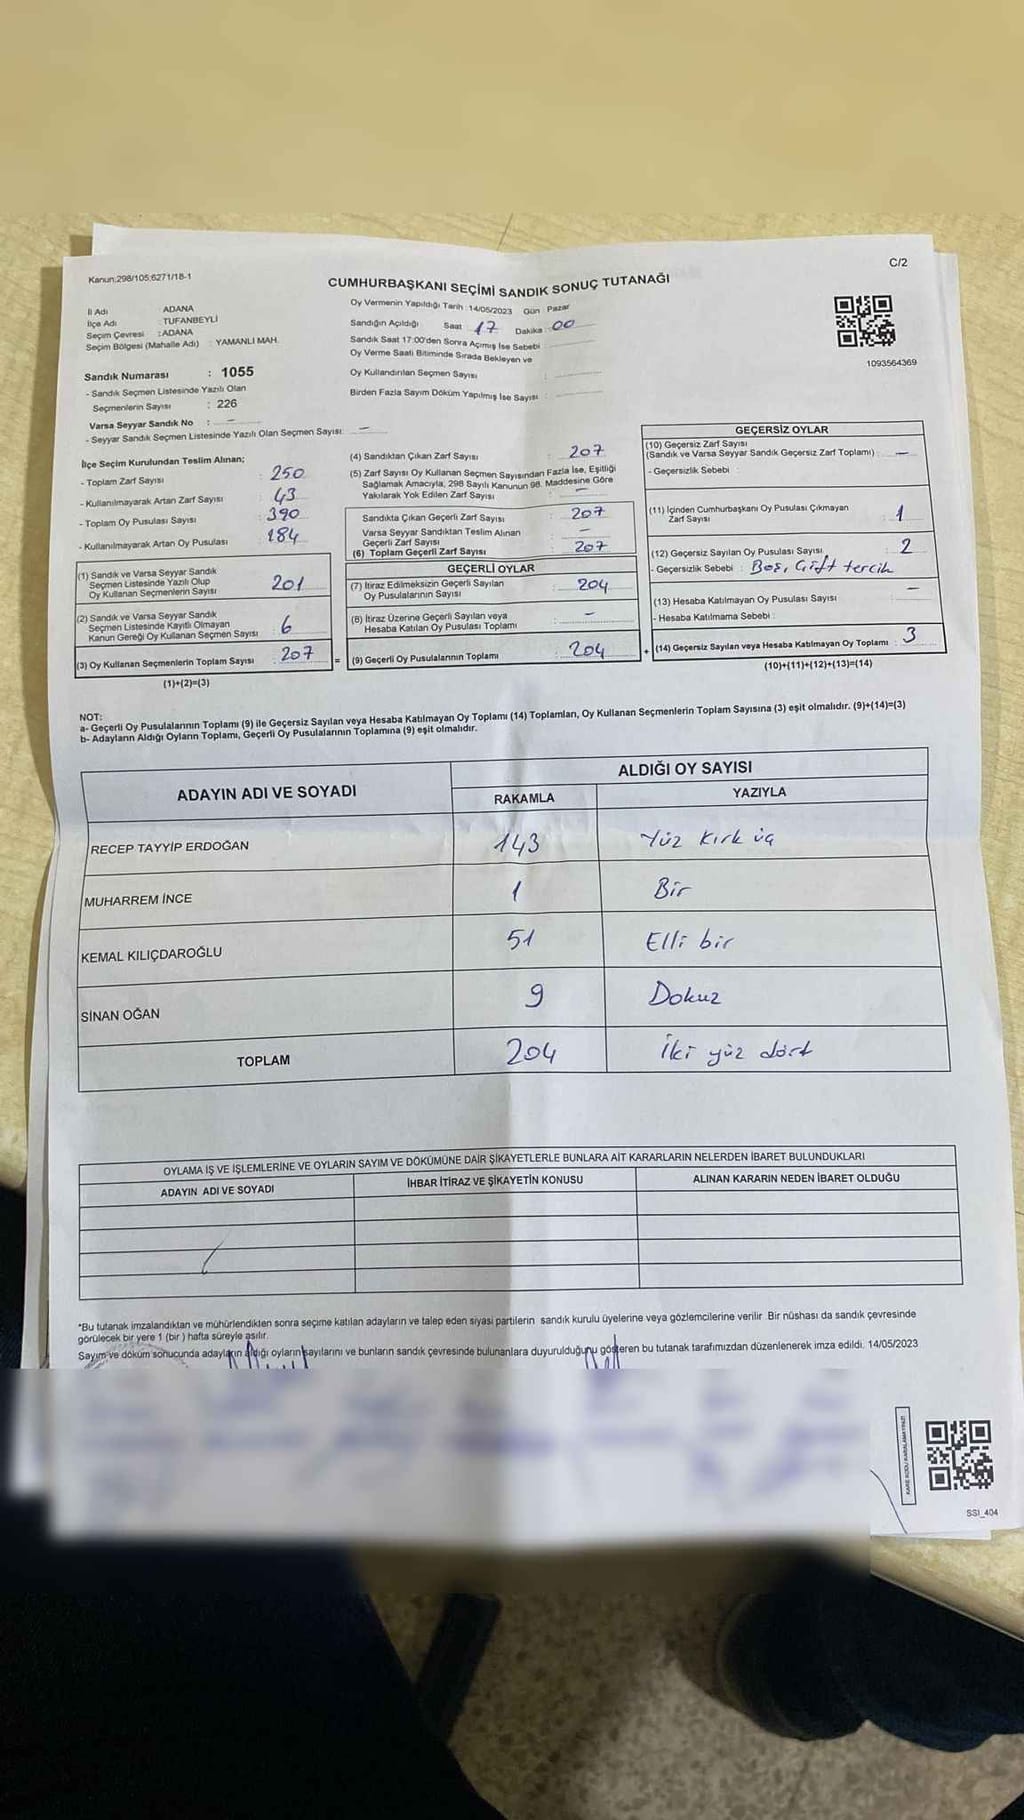 C/2
Kanun:298/105;6271/18-1
CUMHURBAŞKANI SEÇİMİ SANDIK SONUÇ TUTANAĞI
İl Adı ADANA
İlçe Adı : TUFANBEYLİ
Seçim Çevresi : ADANA
Seçim Bölgesi (Mahalle Adı) : YAMANLI MAH.
Sandık Numarası : 1055
- Sandık Seçmen Listesinde Yazılı Olan
Seçmenlerin Sayısı : 226
Varsa Seyyar Sandık No : —
- Seyyar Sandık Seçmen Listesinde Yazılı Olan Seçmen Sayısı: —
Oy Vermenin Yapıldığı Tarih : 14/05/2023 Gün : Pazar
Sandığın Açıldığı Saat : 17 Dakika : 00
Sandık Saat 17:00'den Sonra Açımış İse Sebebi :
Oy Verme Saati Bitiminde Sırada Bekleyen ve
Oy Kullandırılan Seçmen Sayısı :
Birden Fazla Sayım Döküm Yapılmış İse Sayısı :
1093564369
İlçe Seçim Kurulundan Teslim Alınan;
- Toplam Zarf Sayısı : 250
- Kullanılmayarak Artan Zarf Sayısı : 43
- Toplam Oy Pusulası Sayısı : 390
- Kullanılmayarak Artan Oy Pusulası : 184
(1) Sandık ve Varsa Seyyar Sandık
Seçmen Listesinde Yazılı Olup
Oy Kullanan Seçmenlerin Sayısı : 201
(2) Sandık ve Varsa Seyyar Sandık
Seçmen Listesinde Kayıtlı Olmayan
Kanun Gereği Oy Kullanan Seçmen Sayısı : 6
(3) Oy Kullanan Seçmenlerin Toplam Sayısı : 207
(1)+(2)=(3)
(4) Sandıktan Çıkan Zarf Sayısı : 207
(5) Zarf Sayısı Oy Kullanan Seçmen Sayısından Fazla İse, Eşitliği
Sağlamak Amacıyla, 298 Sayılı Kanunun 98. Maddesine Göre
Yakılarak Yok Edilen Zarf Sayısı : —
Sandıkta Çıkan Geçerli Zarf Sayısı : 207
Varsa Seyyar Sandıktan Teslim Alınan
Geçerli Zarf Sayısı : —
(6) Toplam Geçerli Zarf Sayısı : 207
GEÇERLİ OYLAR
(7) İtiraz Edilmeksizin Geçerli Sayılan
Oy Pusulalarının Sayısı : 204
(8) İtiraz Üzerine Geçerli Sayılan veya
Hesaba Katılan Oy Pusulası Toplamı : —
= (9) Geçerli Oy Pusulalarının Toplamı : 204
GEÇERSİZ OYLAR
(10) Geçersiz Zarf Sayısı
(Sandık ve Varsa Seyyar Sandık Geçersiz Zarf Toplamı) : —
- Geçersizlik Sebebi :
(11) İçinden Cumhurbaşkanı Oy Pusulası Çıkmayan
Zarf Sayısı : 1
(12) Geçersiz Sayılan Oy Pusulası Sayısı : 2
- Geçersizlik Sebebi : Boş, Çift tercih
(13) Hesaba Katılmayan Oy Pusulası Sayısı : —
- Hesaba Katılmama Sebebi :
+ (14) Geçersiz Sayılan veya Hesaba Katılmayan Oy Toplamı : 3
(10)+(11)+(12)+(13)=(14)
NOT:
a- Geçerli Oy Pusulalarının Toplamı (9) ile Geçersiz Sayılan veya Hesaba Katılmayan Oy Toplamı (14) Toplamları, Oy Kullanan Seçmenlerin Toplam Sayısına (3) eşit olmalıdır. (9)+(14)=(3)
b- Adayların Aldığı Oyların Toplamı, Geçerli Oy Pusulalarının Toplamına (9) eşit olmalıdır.
ADAYIN ADI VE SOYADI ALDIĞI OY SAYISI
RAKAMLA YAZIYLA
RECEP TAYYİP ERDOĞAN 143 Yüz Kırk üç
MUHARREM İNCE 1 Bir
KEMAL KILIÇDAROĞLU 51 Elli bir
SİNAN OĞAN 9 Dokuz
TOPLAM 204 İki yüz dört
OYLAMA İŞ VE İŞLEMLERİNE VE OYLARIN SAYIM VE DÖKÜMÜNE DAİR ŞİKAYETLERLE BUNLARA AİT KARARLARIN NELERDEN İBARET BULUNDUKLARI
ADAYIN ADI VE SOYADI İHBAR İTİRAZ VE ŞİKAYETİN KONUSU ALINAN KARARIN NEDEN İBARET OLDUĞU
*Bu tutanak imzalandıktan ve mühürlendikten sonra seçime katılan adayların ve talep eden siyasi partilerin sandık kurulu üyelerine veya gözlemcilerine verilir Bir nüshası da sandık çevresinde
görülecek bir yere 1 (bir) hafta süreyle asılır.
Sayım ve döküm sonucunda adayların aldığı oyların sayılarını ve bunların sandık çevresinde bulunanlara duyurulduğunu gösteren bu tutanak tarafımızdan düzenlenerek imza edildi. 14/05/2023
SSI_404